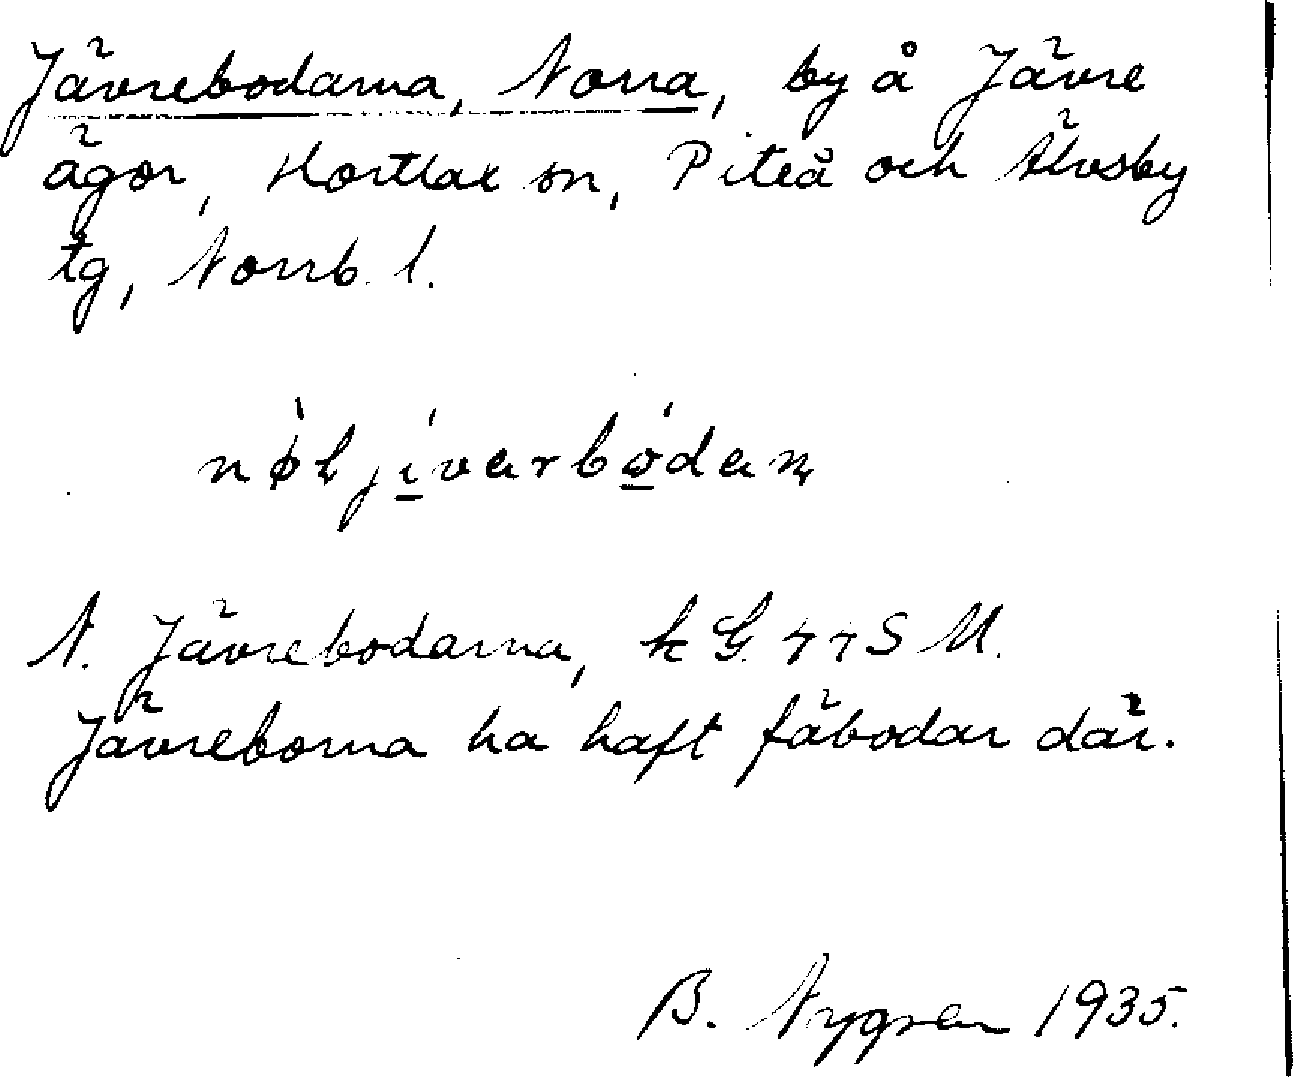 Jävrebodarna, Norra, by å Jävre
ägor, Hortlax sn, Piteå och Älvsby
tg, Norrb. l.
nøljivarbodan
N. Jävrebodarna, k G. 44 S M.
Jävreborna ha haft fäbodar där.
B. Nygren 1935.